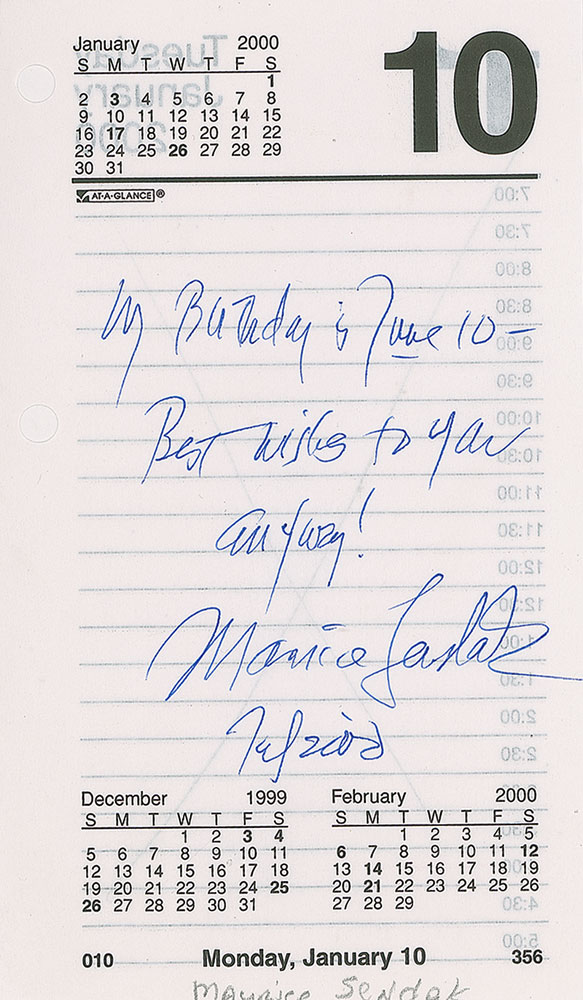 January 2000
10
S M T W T F S
1
2 3 4 5 6 7 8
9 10 11 12 13 14 15
16 17 18 19 20 21 22
23 24 25 26 27 28 29
30 31
AT-A-GLANCE®
My Birthday is June 10 –
Best wishes to you
anyway!
Maurice Sendak
December 1999
S M T W T F S
1 2 3 4
5 6 7 8 9 10 11
12 13 14 15 16 17 18
19 20 21 22 23 24 25
26 27 28 29 30 31
February 2000
S M T W T F S
1 2 3 4 5
6 7 8 9 10 11 12
13 14 15 16 17 18 19
20 21 22 23 24 25 26
27 28 29
010 Monday, January 10 356
Maurice Sendak